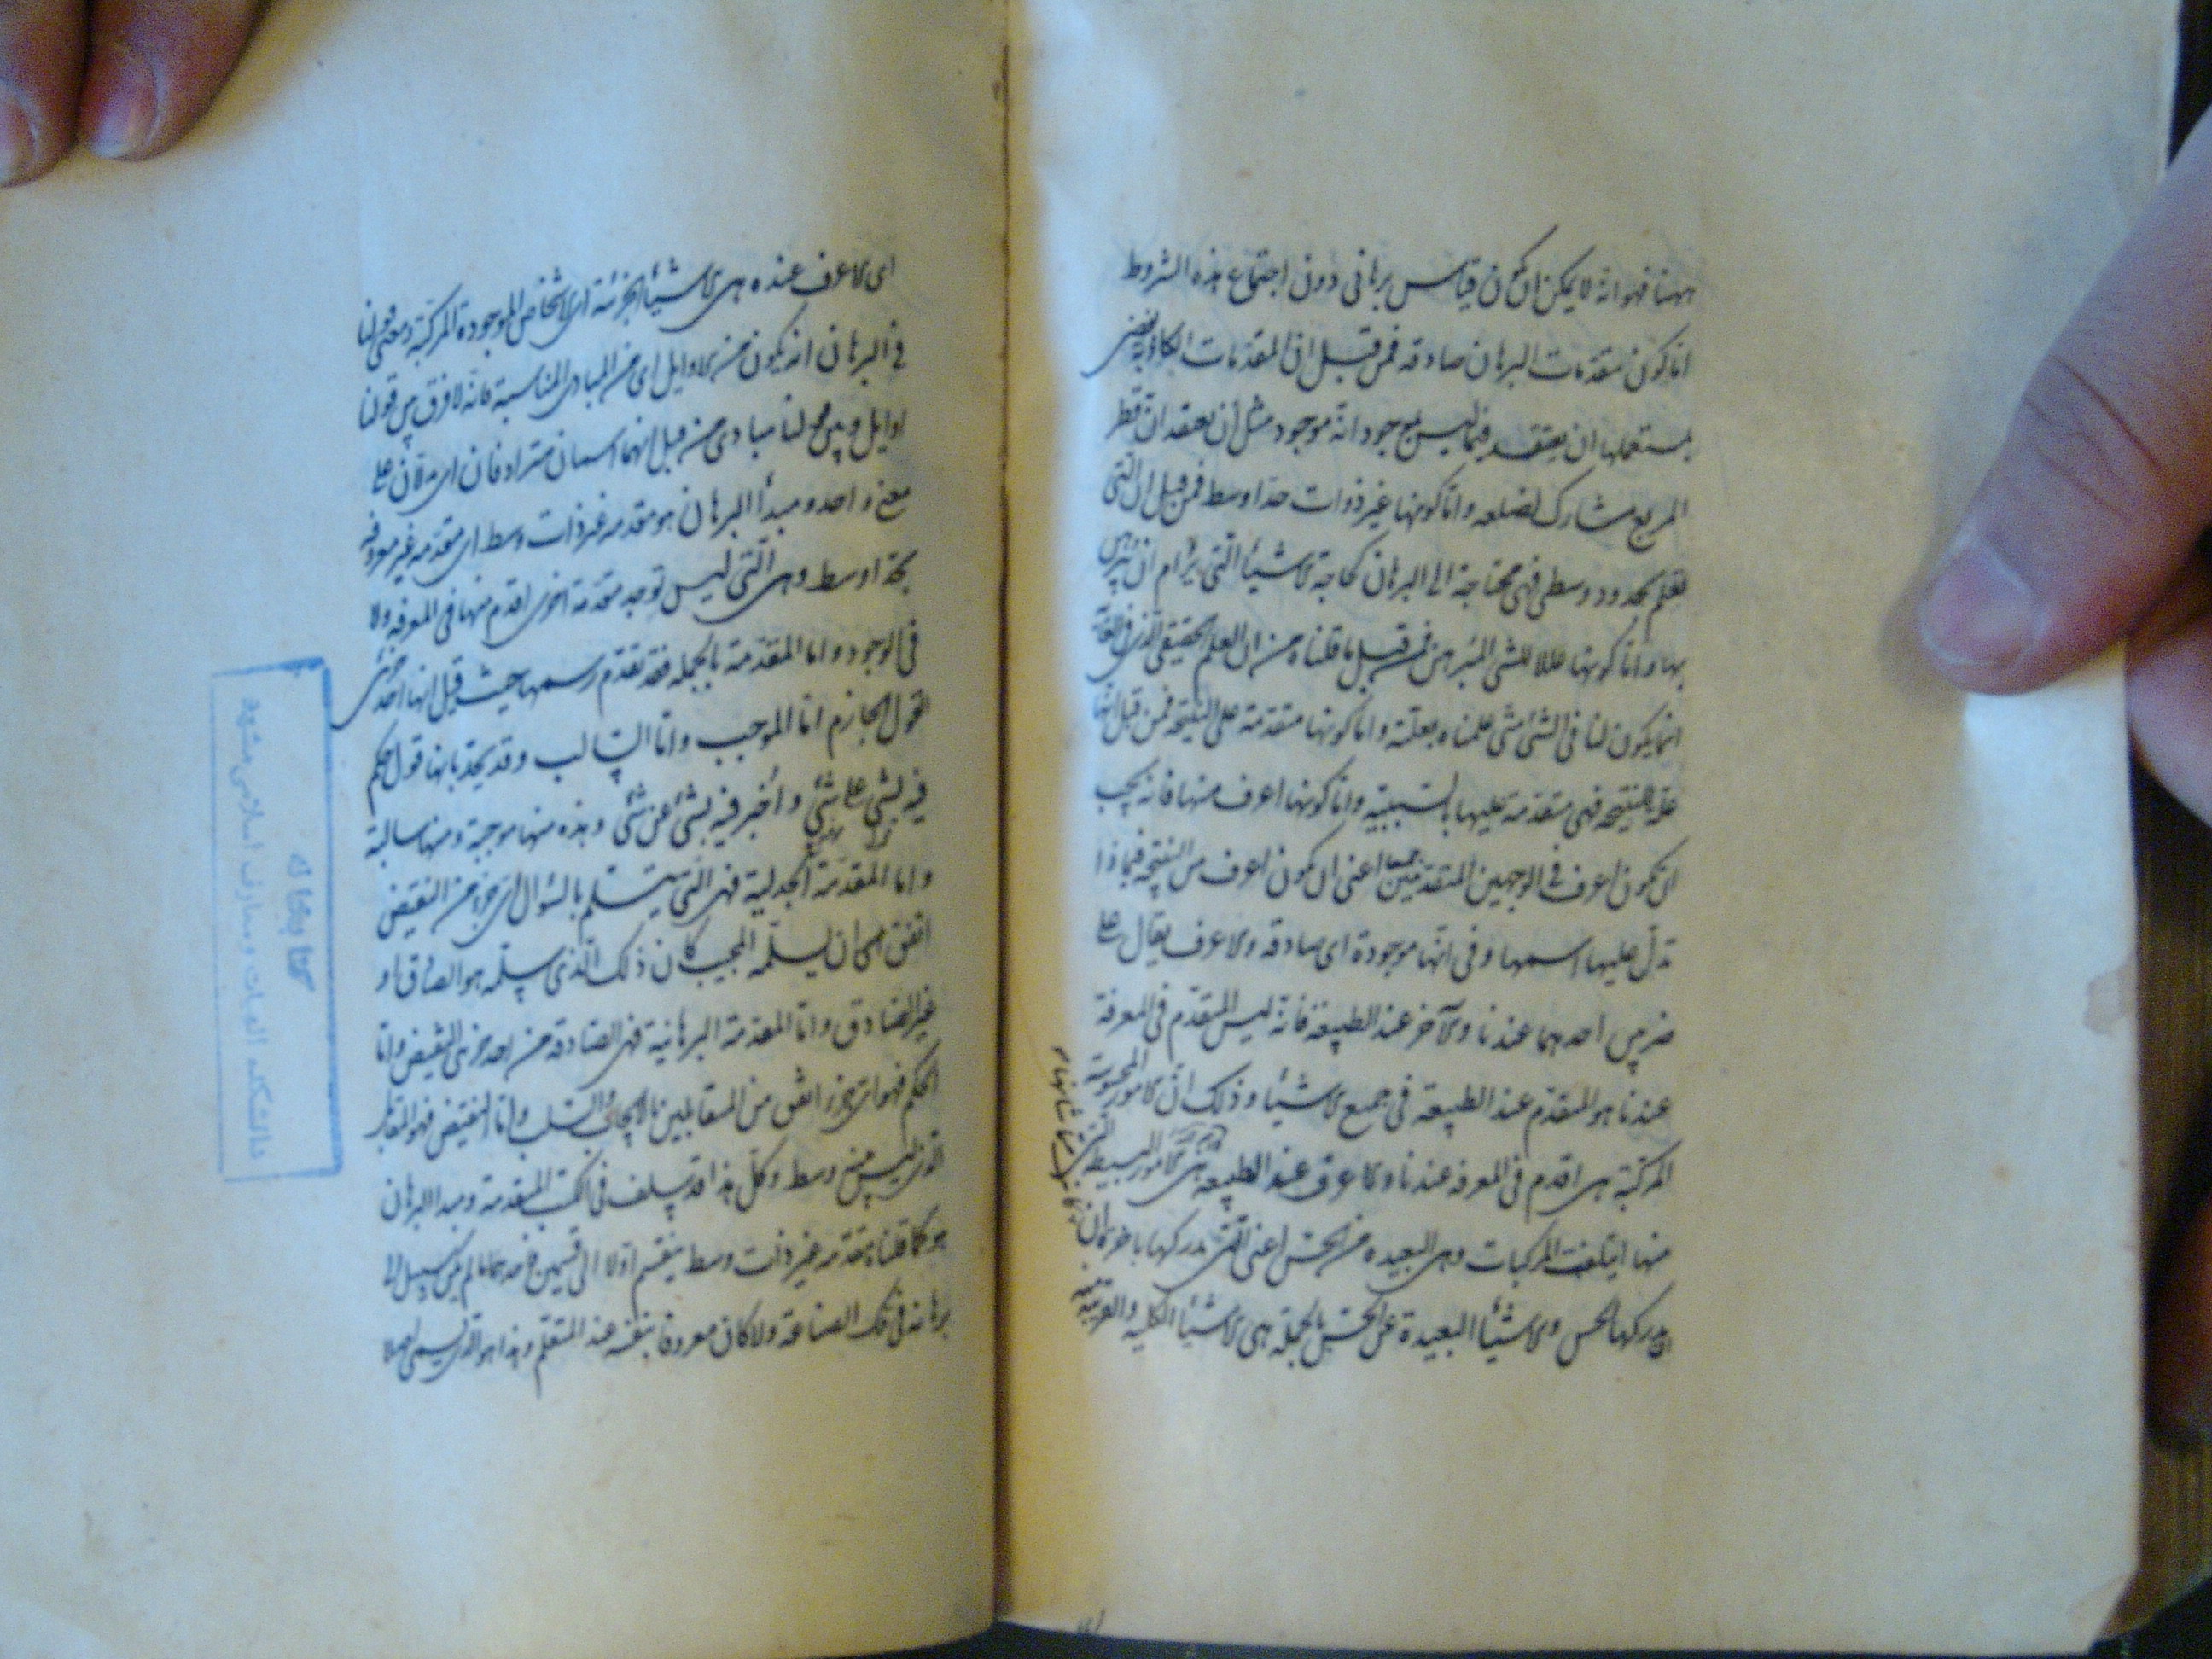 ههنا فهو انه لا يمكن ان يكون قياس برهاني دون اجتماع هذه الشروط
اما كون مقدمات البرهان صادقه فمن قبل ان المقدمات الكاذبة يفضى
بمستعملها ان يعتقد فيما ليس بموجود انه موجود مثل ان يعتقد ان قطر
المربع مشارك لضلعه واما كونها غير ذوات حد اوسط فمن قبل ان التى
تعلم بحدود وسطى فهى محتاجة الى البرهان كحاجة الاشيا التى يرام ان يبرهن
بها واما كونها عللا للشى المبرهن فمن قبل ما قلناه من ان العلم الحقيقى الذى فى الغاية
انما يكون لنا فى الشى متى علمناه بعلته واما كونها متقدمة على النتيجة فمن قبل انها
علة للنتيجة فهى متقدمة عليها بالسببية واما كونها اعرف منها فانه يجب
ان تكون اعرف فى الوجهين المتقدمين جميعا اعنى ان تكون اعرف من النتيجة فيما ذا
تدل عليها اسمها وفى انها موجودة اى صادقه والاعرف يقال على
ضربين احدهما عندنا والاخر عند الطبيعة فانه ليس المتقدم فى المعرفة
عندنا هو المتقدم عند الطبيعة فى جميع الاشيا وذلك ان الامور المحسوسة
المركبة هى اقدم فى المعرفه عندنا والاعرف عند الطبيعه هى الامور البسيطة التى
منها ايتلفت المركبات وهى البعيده من الحس اعنى التى
يدركها الحس والاشيا البعيدة عن الحس بالجملة هى الاشيا الكلية والقريبة منه
اى الاعرف عنده هى الاشيا الجزئية اى الاشخاص الموجودة المركبة ومعنى قولنا
فى البرهان انه يكون من الاوايل اى من المبادى المناسبة فانه لا فرق بين قولنا
اوايل وبين قولنا مبادى من قبل انهما اسمان مترادفان اى يدلان على
معنى واحد ومبدأ البرهان هو مقدمه غير ذات وسط اى مقدمه غير معروفة
بحد اوسط وهى التى ليس توجد مقدمة اخرى اقدم منها فى المعرفه ولا
فى الوجود واما المقدمة بالجمله فقد تقدم رسمها حيث قيل انها احد جزئى
القول الجازم اما الموجب واما السالب وقد يحد بانها قول حكم
فيه بشى على شى واخبر فيه بشى عن شى وهذه منها موجبة ومنها سالبة
واما المقدمة الجدلية فهى التى يتسلم بالسوال اى جزء من النقيض
اتفق ان يسلمه المجيب كان ذلك الذى يسلمه هو الصادق او
غير الصادق واما المقدمة البرهانية فهى الصادقه من احد جزئى النقيض واما
الحكم فهو اى جزء اتفق من المتقابلين بالايجاب والسلب واما النقيض فهو التقابل
الذى ليس بينه وسط وكل هذا قد سلف فى الكتب المتقدمة ومبدا البرهان
هو كما قلنا مقدمه غير ذات وسط ينقسم اولا الى قسمين احدهما ما لم يكن سبيل الى
برهانه فى تلك الصناعة ولا كان معروفا بنفسه عند المتعلم وهذا هو الذى يسمى اصلا
كتابخانه
دانشكده الهيات و معارف اسلامى مشهد